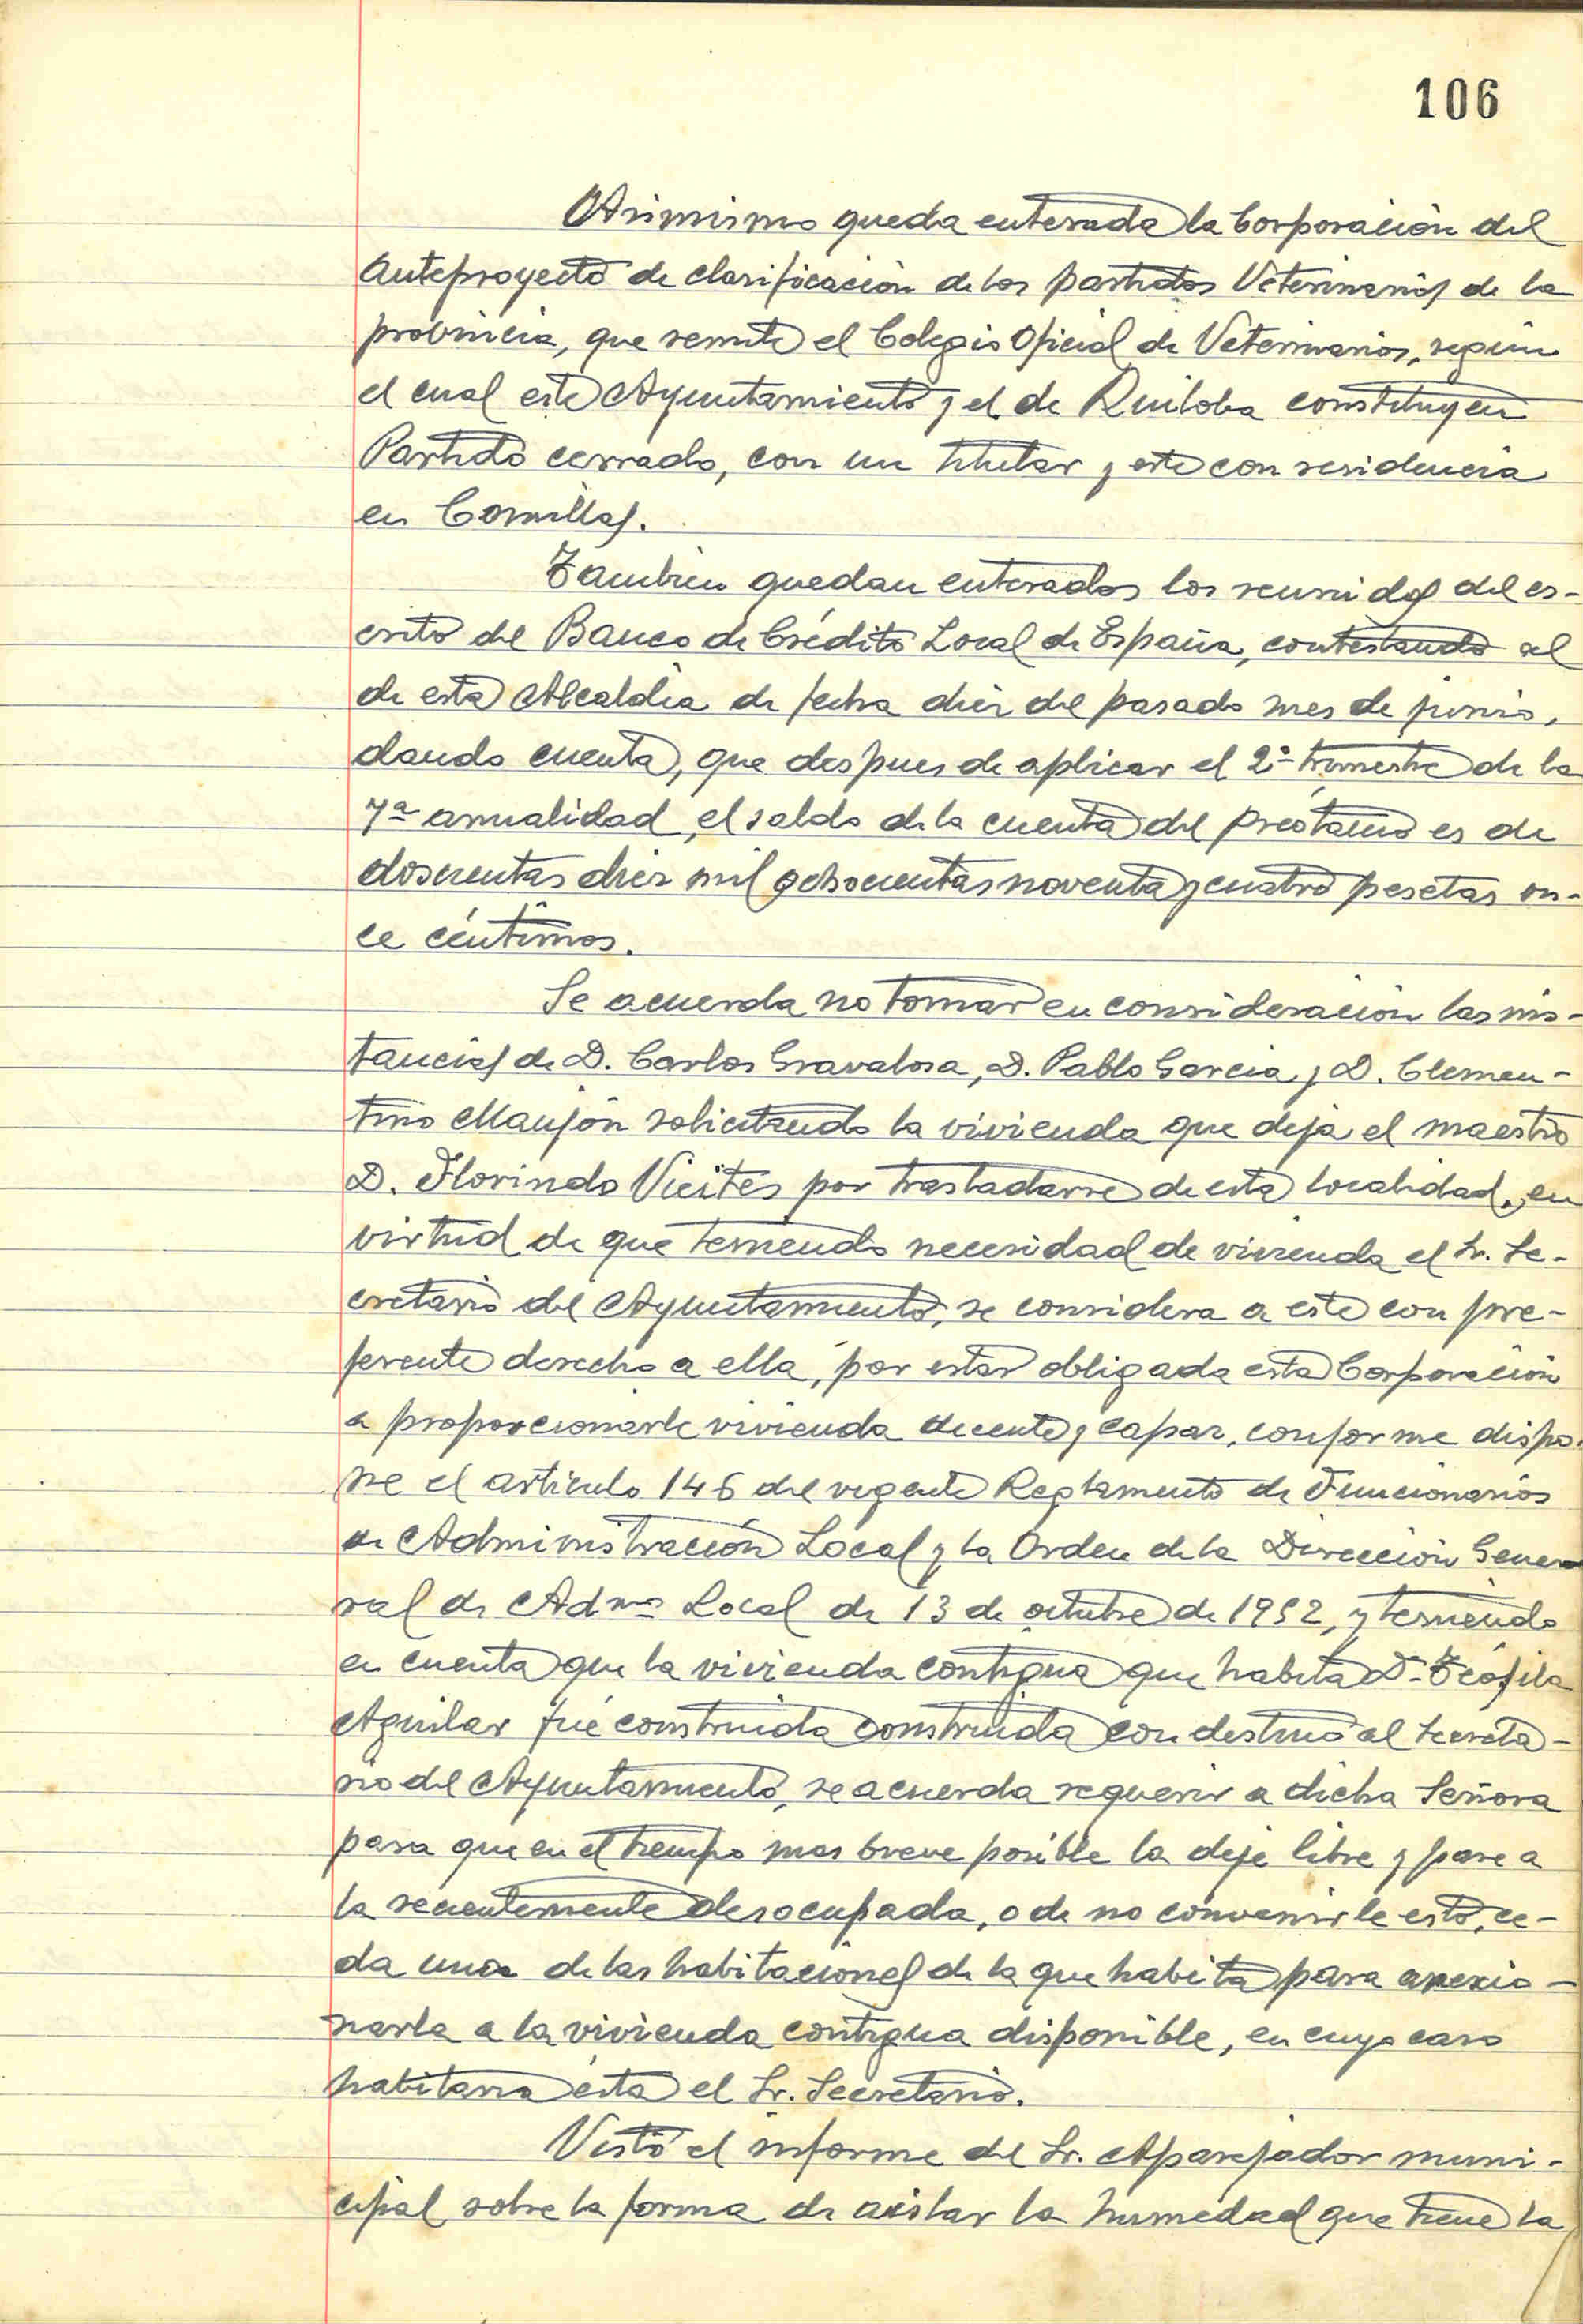 106
Asimismo queda enterada la Corporación del
Anteproyecto de clasificación de los partidos Veterinarios de la
provincia, que remite el Colegio Oficial de Veterinarios, según
el cual este Ayuntamiento y el de Ruiloba constituyen
Partido cerrado, con un titular y este con residencia
en Comillas.
Tambien quedan enterados los reunidos del es-
crito del Banco de Crédito Local de España, contestando al
de esta Alcaldía de fecha diez del pasado mes de junio,
dando cuenta, que despues de aplicar el 2º trimestre de la
7ª anualidad, el saldo de la cuenta del prestamo es de
doscientas diez mil ochocientas noventa y cuatro pesetas on-
ce céntimos.
Se acuerda no tomar en consideración las ins-
tancias de D. Carlos Gravalosa, D. Pablo Garcia y D. Clemen-
tino Manjón solicitando la vivienda que deja el maestro
D. Florindo Vieites por trasladarse de esta localidad, en
virtud de que teniendo necesidad de vivienda el Sr. Se-
cretario del Ayuntamiento, se considera a este con pre-
ferente derecho a ella, por estar obligada esta Corporación
a proporcionarle vivienda decente y capaz, conforme dispo-
ne el artículo 146 del vigente Reglamento de Funcionarios
de Administración Local y la Orden de la Dirección Gene
ral de Admº Local de 13 de octubre de 1952, y teniendo
en cuenta que la vivienda contigua que habita Dª Teófila
Aguilar fué construida construida con destino al Secreta-
rio del Ayuntamiento, se acuerda requerir a dicha Señora
para que en el tiempo mas breve posible la deje libre y pase a
la recientemente desocupada, o de no convenirle esto, ce-
da una de las habitaciones de la que habita para anexio-
narla a la vivienda contigua disponible, en cuyo caso
habitaria ésta el Sr. Secretario.
Visto el informe del Sr. Aparejador muni-
cipal sobre la forma de aislar la humedad que tiene la